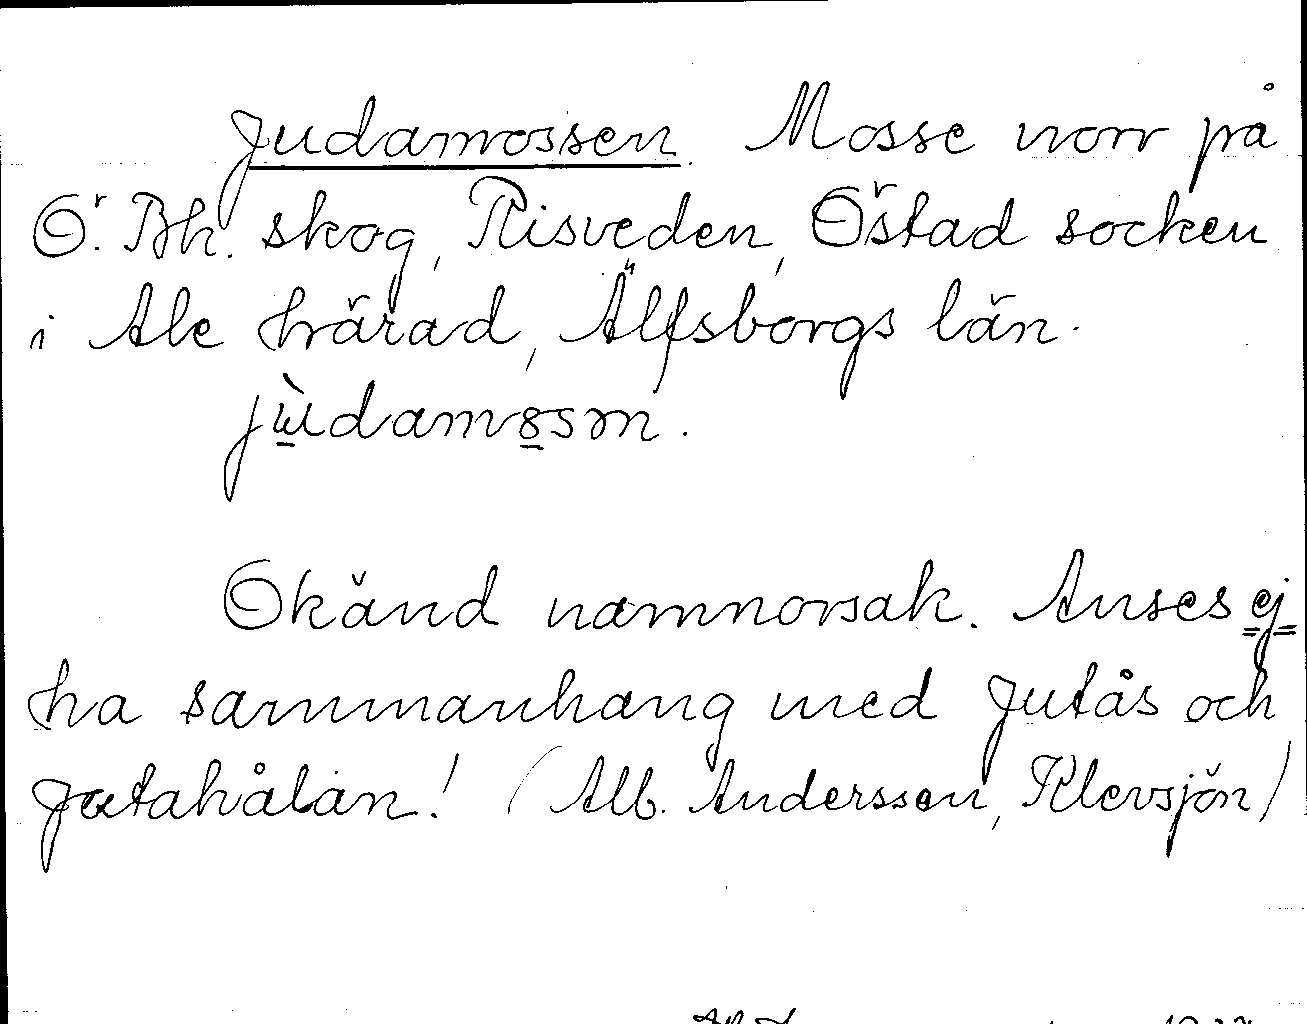 Judamossen. Mosse norr på
Ö. Bh. skog, Risveden, Östad socken
i Ale härad, Älfsborgs län.
Okänd namnorsak. Anses ej
ha sammanhang med Jutås och
Jutahålan! (Alb. Andersson, Klevsjön)